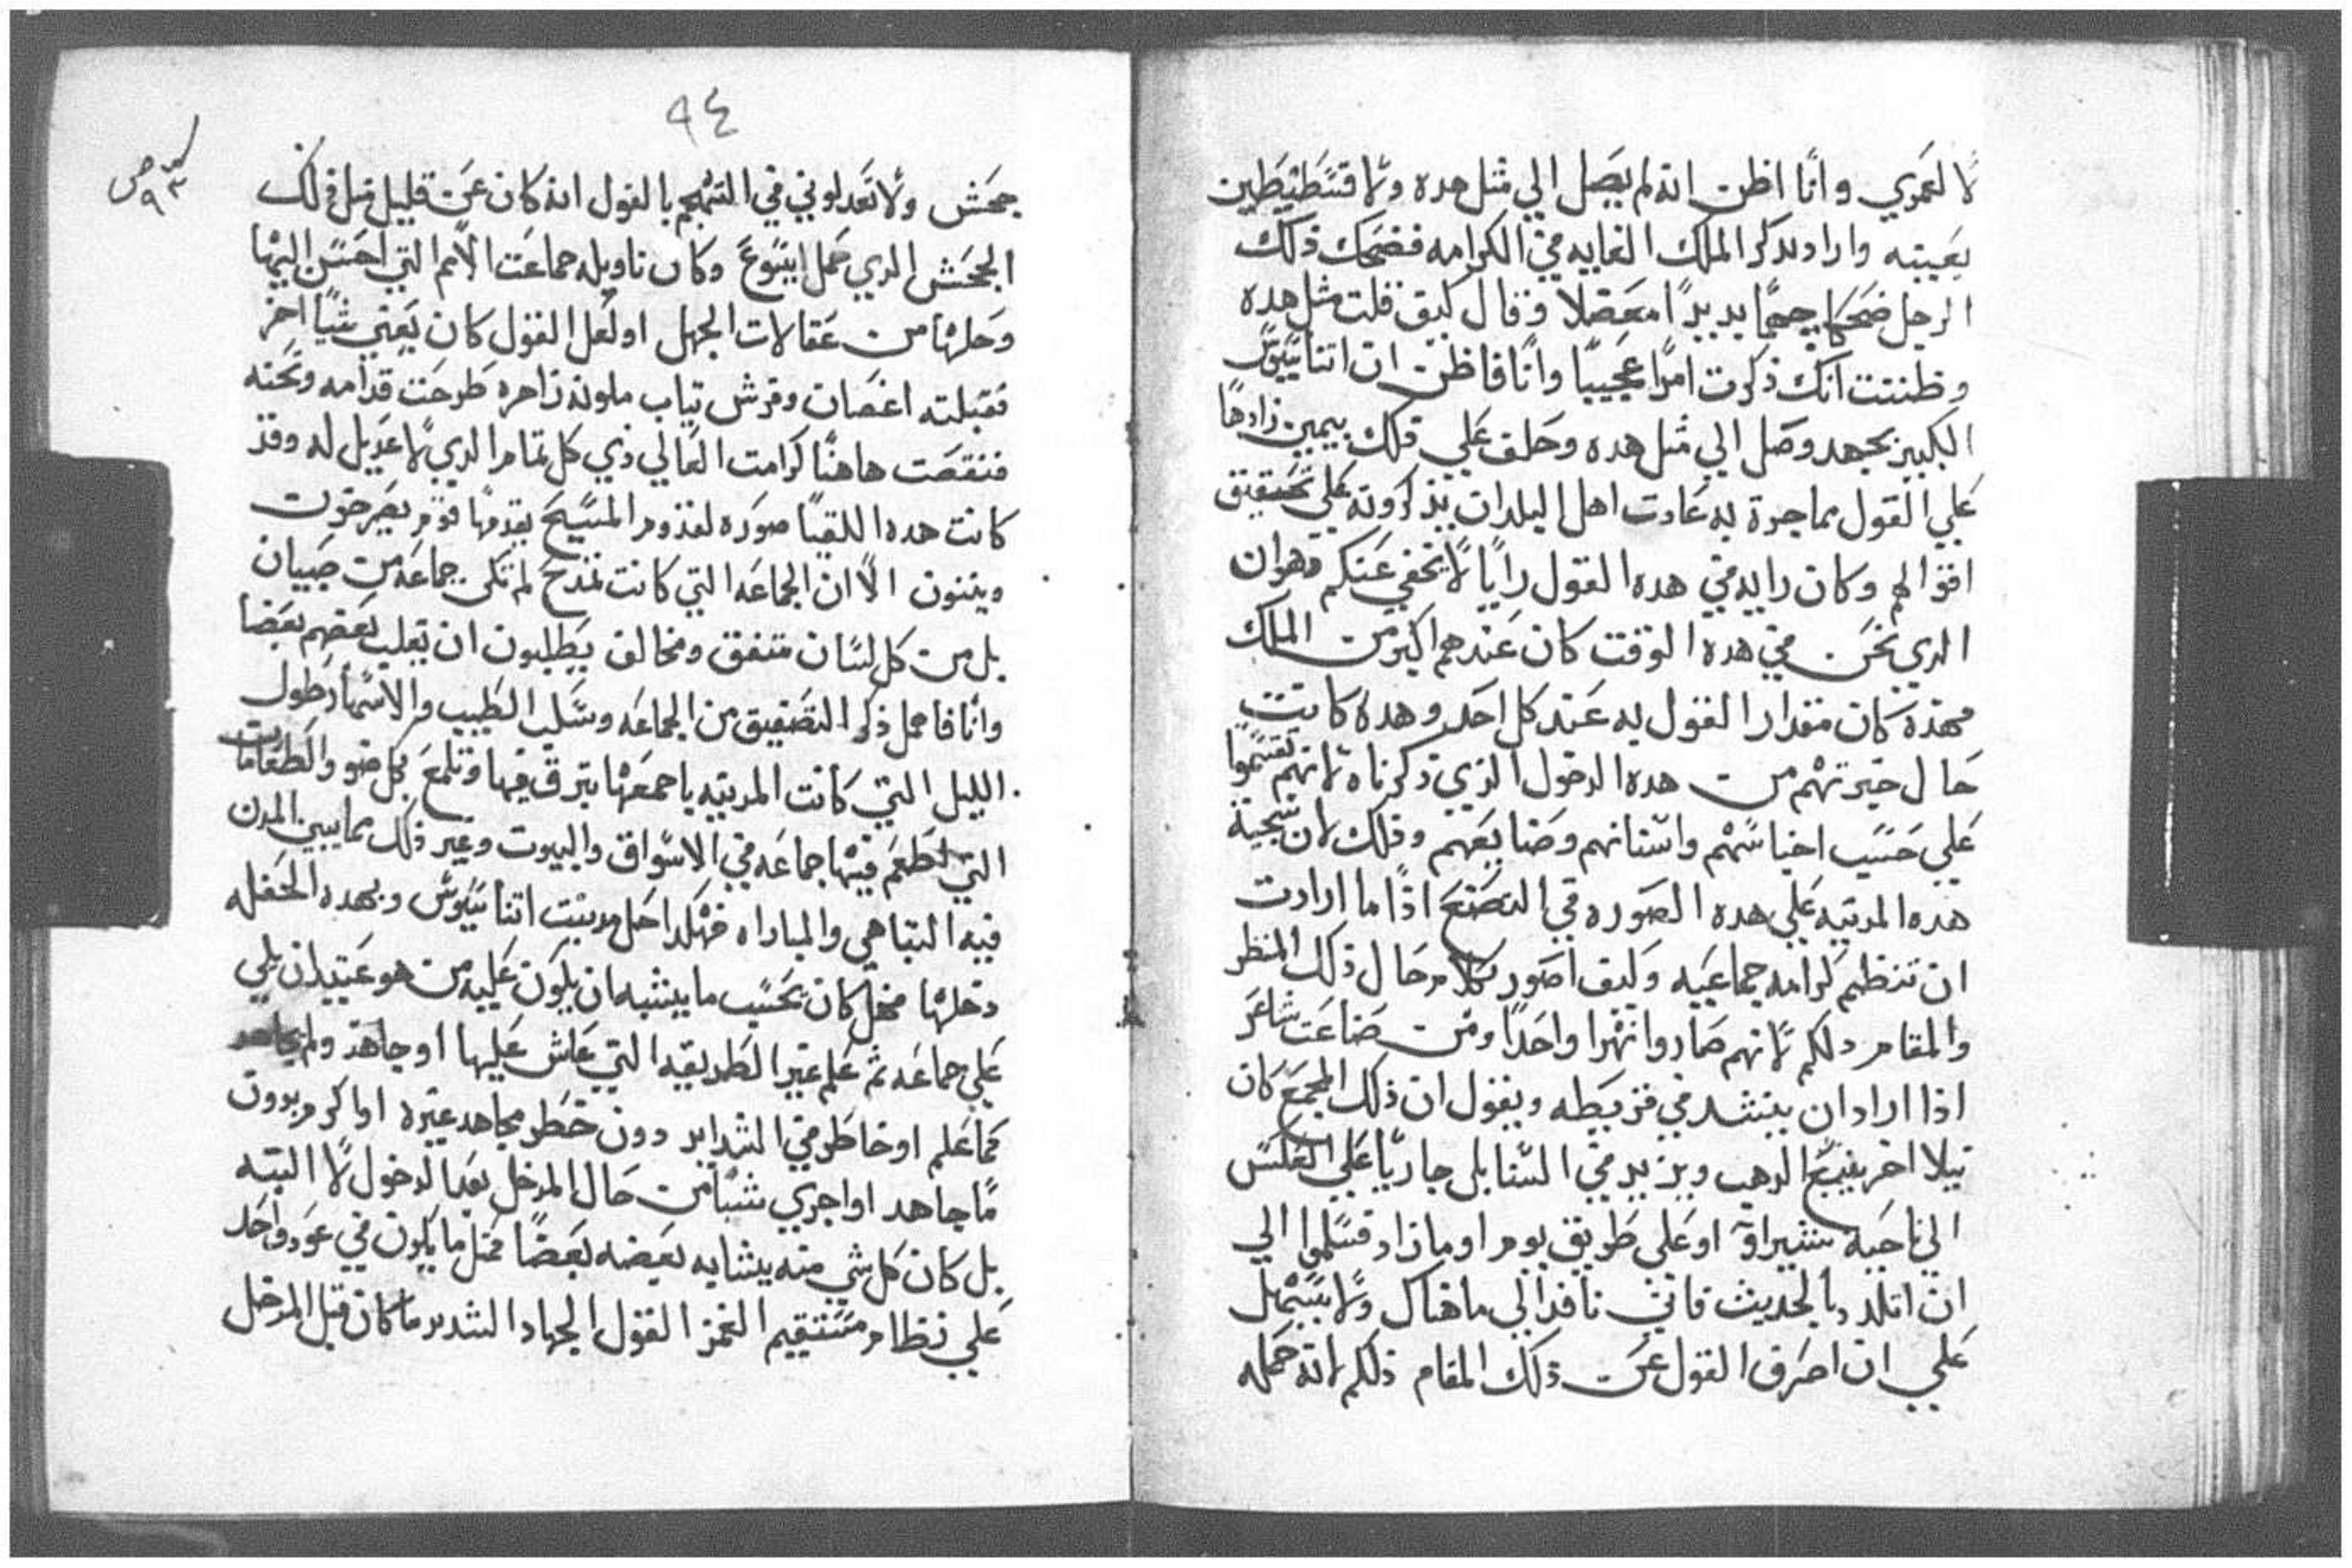 لا لعمري وانا اظن انه لم يصل الي مثل هده ولا قسطنطين
بعينه واراد بدكر الملك الغايه في الكرامه فضحك ذلك
الرجل ضحكا جما وقال كيف قلت مثل هده
وظننت انك ذكرت امرا عجيبا وانا فاظن ان اتناسيوس
الكبير بجهد وصل الي مثل هده وحلف علي ذلك بيمين زادها
علي القول مما جرة به عادت اهل البلدان يذكرونه علي تحقيق
اقوالهم وكان رايه في هده القول رايا لا يخفي عنكم فهوان
الدي نحن في هده الوقت كان عندهم اكبر من الملك
مهذه كان مقدار القول به عند كل احد وهده كانت
حال حيرتهم من هده الدخول الذي ذكرناه لانهم تقسموا
علي حسب اجناسهم واسنانهم وصنايعهم وذلك لان سجية
هده المدينه علي هده الصوره في التصنع اذا ما ارادت
ان تنظم كرامه جماعيه وكيف اصور بكلام حال ذلك المنظر
والمقام دلكم لانهم صاروا نهرا واحدا ومن صناعت شاعر
اذا اراد ان ينشد في قريطه ويقول ان ذلك المجمع كان
نيلا اخر ينبع الدهب ويزيد في السنابل جاريا علي العكس
الي ناحية شيراو او علي طريق يوم او ما زاد فسلموا الي
ان اتلدد بالحديث فانني نافد الي ما هناك ولا يسهل
علي ان اصرف القول عن ذلك المقام ذلكم لانه حمله
٩٤
جحش ولا تعدلوني في التهجم بالقول انه كان عن قليل مثل ذلك
الجحش الدي حمل ايسوع وكان تاويله جماعت الامم التي احسن اليها
وحلها من عقالات الجهل او لعل القول كان يعني شيا اخر
فقبلته اغصان وفرش تياب ملونه زاهره طرحت قدامه وتحته
فنقصت هاهنا كرامت العالي ذي كل تمام الدي لا عديل له وقد
كانت هده اللقيا صوره لقدوم المسيح يقدمها قوم يصرخون
ويثنون الا ان الجماعه التي كانت تمدح لم تكن جماعه من صبيان
بل من كل لسان متفق ومخالف يطلبون ان يغلب بعضهم بعضا
وانا فاهمل ذكر التصفيق من الجماعه وسكب الطيب والاسهار طول
الليل التي كانت المدينه باجمعها تبرق فيها وتلمع بكل ضو والطعامات
التي تطعم فيها جماعه في الاسواق والبيوت وغير ذلك مما يبين المدن
فيه التباهي والمباراه فهكدا دخل مدينت اتناسيوس وبهده الحفله
دخلها فهل كان بحسب ما يشبه ان يكون عليه من هو عتيد ان يلي
علي جماعه ثم علم غير الطريقه التي عاش عليها او جاهد ولم يجاهد
كما علم او خاطر في الشدايد دون خطر مجاهد غيره او اكرم بدون
ما جاهد او اجري شيا من حال المدخل بعد الدخول لا البته
بل كان كل شي منه يشابه بعضه بعضا مثل ما يكون في عود واحد
علي نظام مستقيم النغمز القول الجهاد الشديد ما كان قبل المدخل